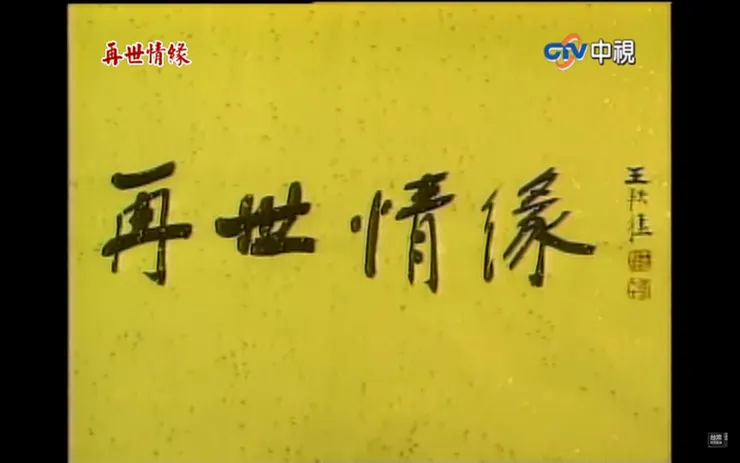 再世情緣
CTV中視
再世情緣